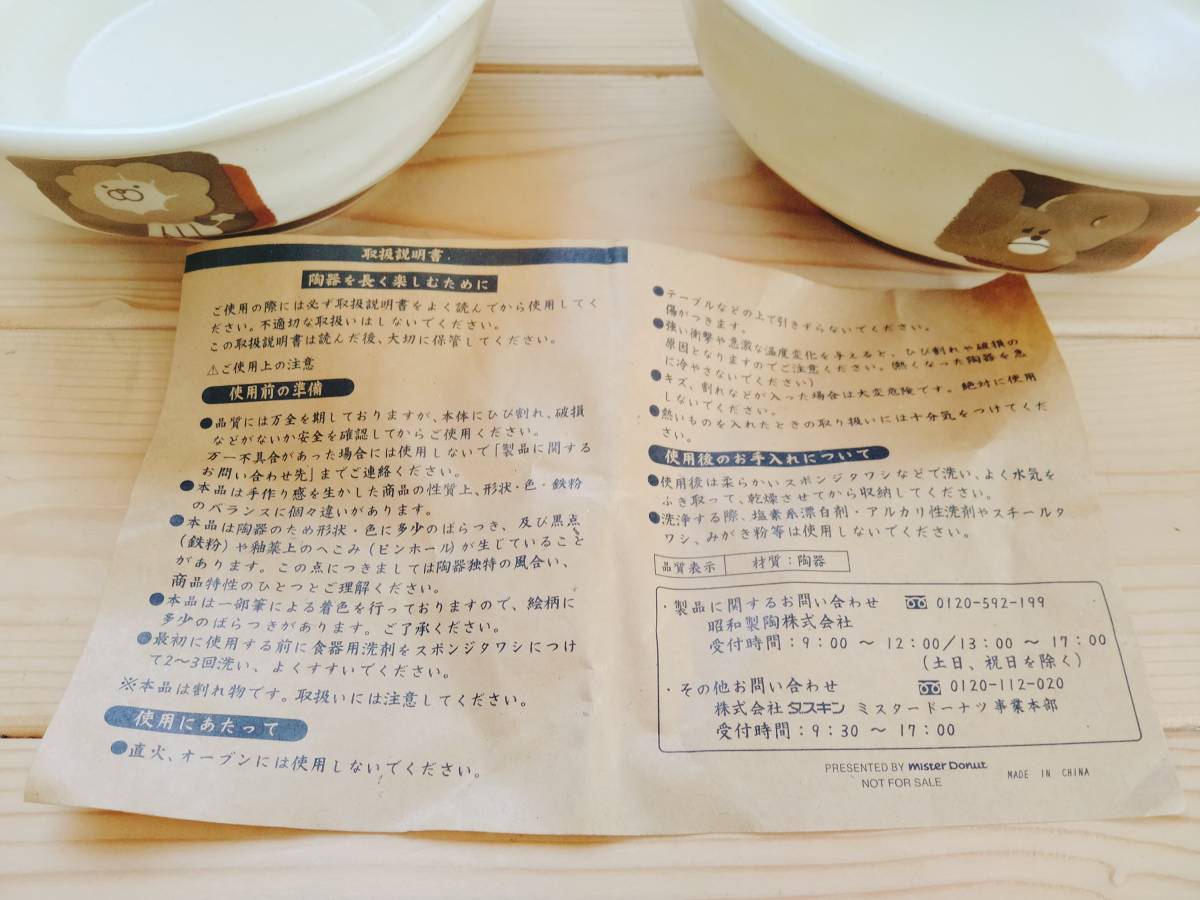 取扱説明書
陶器を長く楽しむために
ご使用の際には必ず取扱説明書をよく読んでから使用してく
ださい。不適切な取扱いはしないでください。
この取扱説明書は読んだ後、大切に保管してください。
⚠ご使用上の注意
使用前の準備
●品質には万全を期しておりますが、本体にひび割れ、破損
などがないか安全を確認してからご使用ください。
万一不具合があった場合には使用しないで「製品に関する
お問い合わせ先」までご連絡ください。
●本品は手作り感を生かした商品の性質上、形状・色・鉄粉
のバランスに個々違いがあります。
●本品は陶器のため形状・色に多少のばらつき、及び黒点
(鉄粉)や釉薬上のへこみ(ピンホール)が生じていること
があります。この点につきましては陶器独特の風合い、
商品特性のひとつとご理解ください。
●本品は一部筆による着色を行っておりますので、絵柄に
多少のばらつきがあります。ご了承ください。
●最初に使用する前に食器用洗剤をスポンジタワシにつけ
て2〜3回洗い、よくすすいでください。
※本品は割れ物です。取扱いには注意してください。
使用にあたって
●直火、オーブンには使用しないでください。
●テーブルなどの上で引きずらないでください。
傷がつきます。
●強い衝撃や急激な温度変化を与えると、ひび割れや破損の
原因となりますのでご注意ください。(熱くなった陶器を急
に冷やさないでください)
●キズ、割れなどが入った場合は大変危険です。絶対に使用
しないでください。
●熱いものを入れたときの取り扱いには十分気をつけてくだ
さい。
使用後のお手入れについて
●使用後は柔らかいスポンジタワシなどで洗い、よく水気を
ふき取って、乾燥させてから収納してください。
●洗浄する際、塩素系漂白剤・アルカリ性洗剤やスチールタ
ワシ、みがき粉等は使用しないでください。
品質表示 材質:陶器
・製品に関するお問い合わせ 0120-592-199
昭和製陶株式会社
受付時間:9:00 〜 12:00/13:00 〜 17:00
(土日、祝日を除く)
・その他お問い合わせ 0120-112-020
株式会社ダスキン ミスタードーナツ事業本部
受付時間:9:30 〜 17:00
PRESENTED BY mister Donut
NOT FOR SALE
MADE IN CHINA